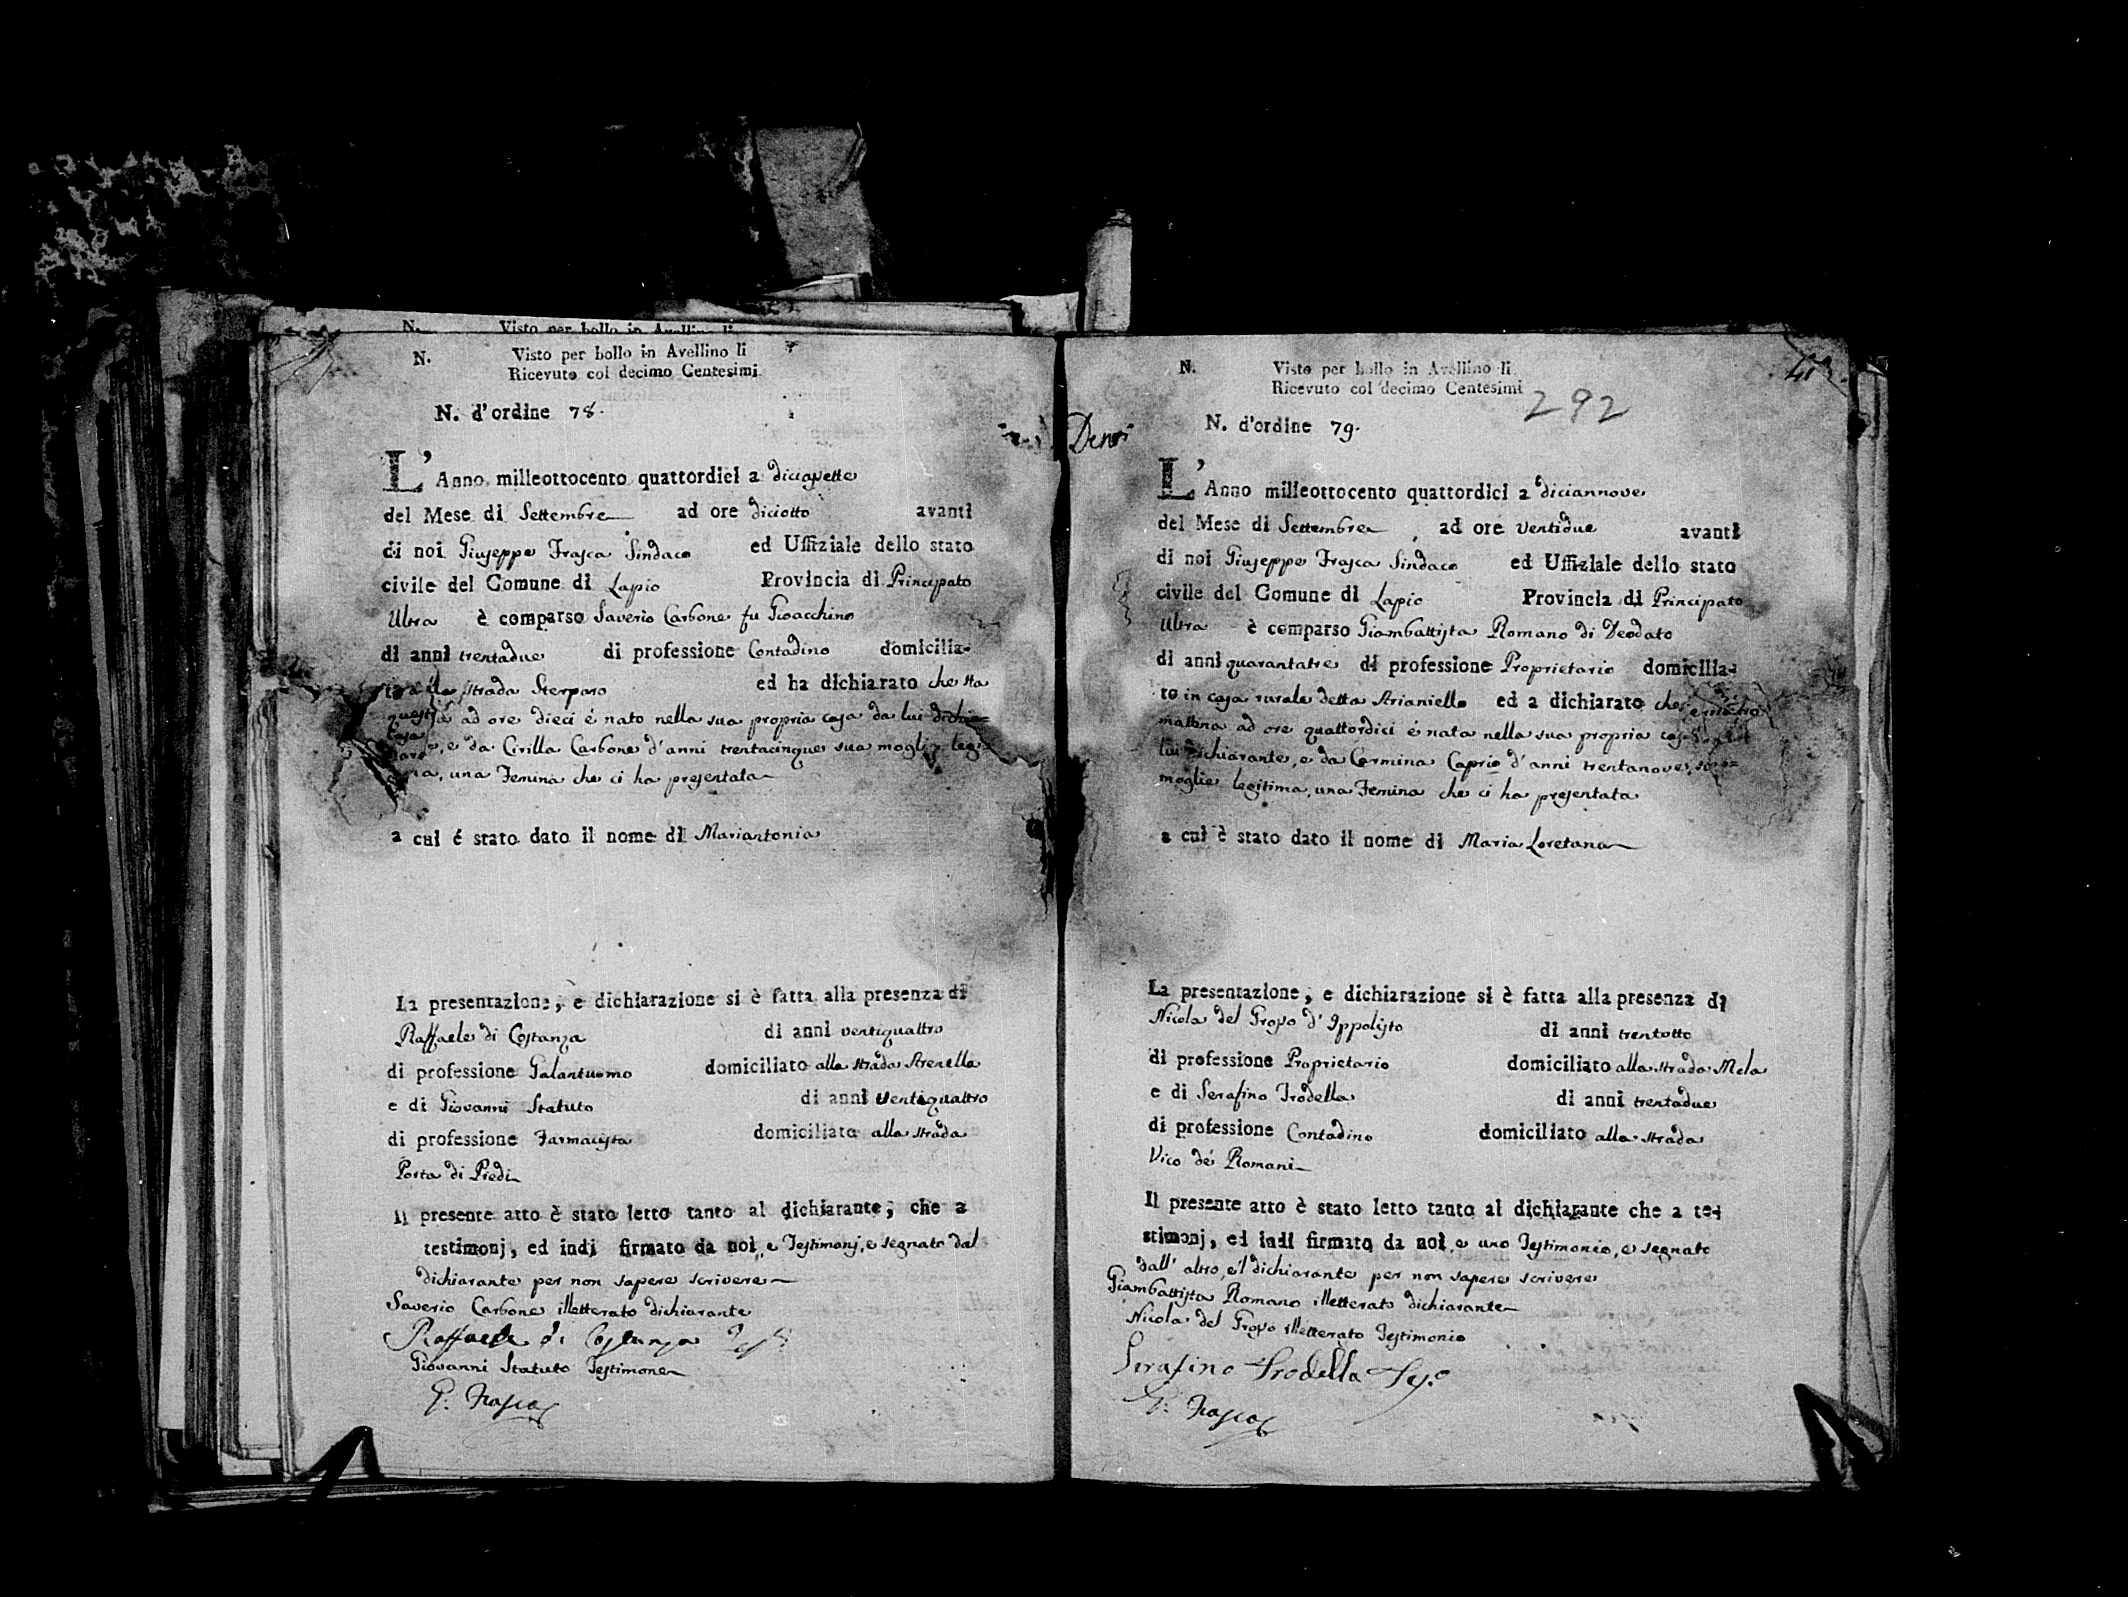 N. Visto per bollo in Avellino li
N. Visto per bollo in Avellino li
Ricevuto col decimo Centesimi
N. d'ordine 78.
L'Anno milleottocento quattordici a diciasette
del Mese di Settembre ad ore diciotto avanti
di noi Giuseppe Frasca Sindaco ed Uffiziale dello stato
civile del Comune di Lapio Provincia di Principato
Ultra è comparso Saverio Carbone fu Gioacchino
di anni trentadue di professione Contadino domicilia-
Strada Sterparo ed ha dichiarato che sta
ad ore dieci é nato nella sua propria casa da lui
e da Cirilla Carbone d'anni trentacinque sua moglie
una Femina che ci ha presentata
a cui é stato dato il nome di Mariantonia
La presentazione, e dichiarazione si è fatta alla presenza di
Raffaele di Costanza di anni ventiquattro
di professione Galantuomo domiciliato alla strada Arenella
e di Giovanni Statuto di anni ventiquattro
di professione Farmacista domiciliato alla strada
Porta di Piedi
Il presente atto è stato letto tanto al dichiarante, che a
testimonj, ed indi firmato da noi, e Testimonj, e segnato dal
dichiarante per non sapere scrivere
Saverio Carbone illetterato dichiarante
Raffaele di Costanza
Giovanni Statuto Testimone
G. Frasca
N. Visto per bollo in Avellino li
Ricevuto col decimo Centesimi
292
N. d'ordine 79.
L'Anno milleottocento quattordici a diciannove
del Mese di Settembre ad ore ventidue avanti
di noi Giuseppe Frasca Sindaco ed Uffiziale dello stato
civile del Comune di Lapio Provincia di Principato
Ultra è comparso Giambattista Romano di Deodato
di anni quarantatre di professione Proprietario domicilia-
to in casa rurale detta Arianiello ed a dichiarato che
mattina ad ore quattordici é nata nella sua propria casa
lui dichiarante, e da Carmina Caprio d'anni trentanove, sua
moglie legitima, una Femina che ci ha presentata
a cui è stato dato il nome di Maria Loretana
La presentazione, e dichiarazione si è fatta alla presenza di
Nicola del Grosso d'Ippolisto di anni trentotto
di professione Proprietario domiciliato alla strada Mela
e di Serafino Trodella di anni trentadue
di professione Contadino domiciliato alla strada
Vico dé Romani
Il presente atto è stato letto tanto al dichiarante che a te-
stimonj, ed indi firmato da noi, e uno Testimonio, e segnato
dall' altro, e'l dichiarante per non sapere scrivere
Giambattista Romano illetterato dichiarante
Nicola del Grosso illetterato Testimonio
Serafino Trodella
G. Frasca